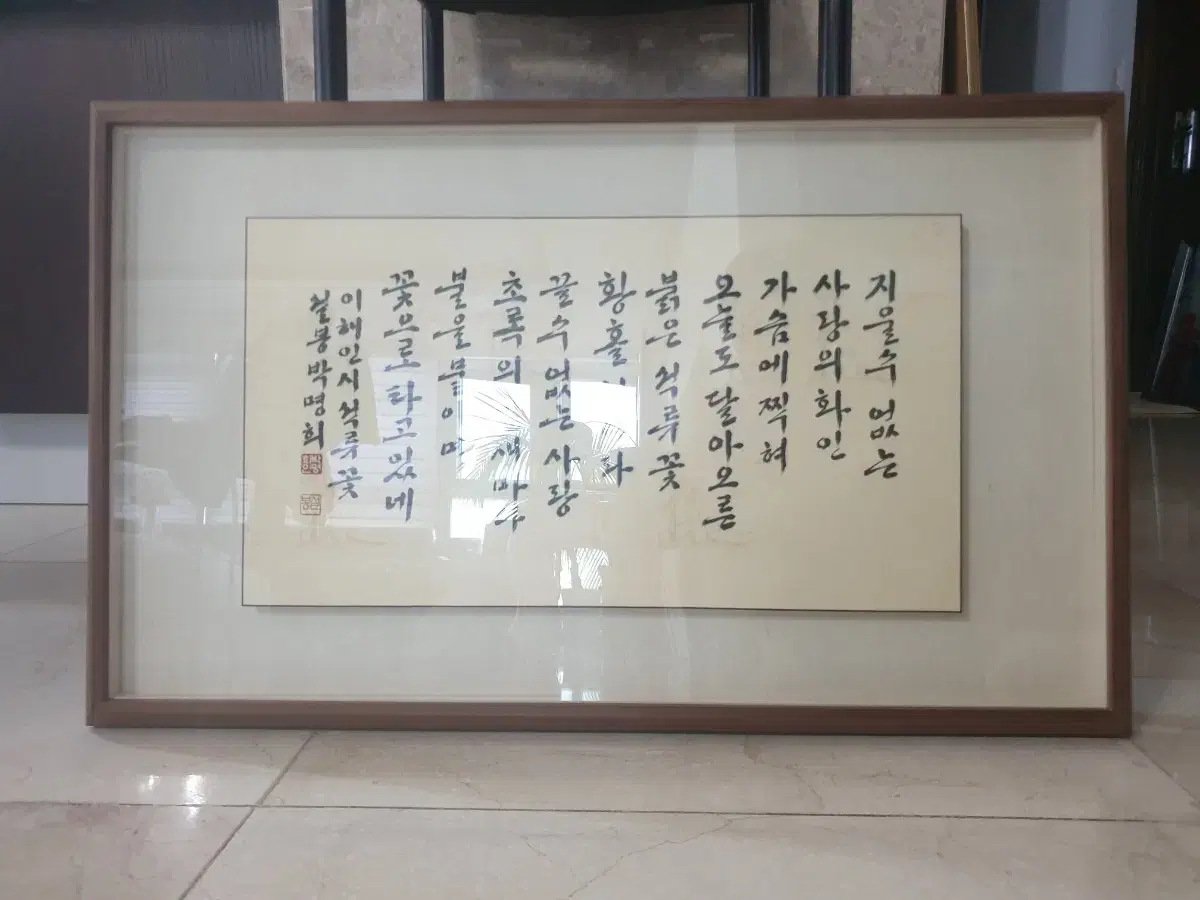 지울수 없는
사랑의 화인
가슴에 찍혀
오늘도 달아오른
붉은 석류꽃
끌수 없는 사랑
초록의
불을 붙이며
꽃으로 타고있네
이해인시 석류꽃
박명희